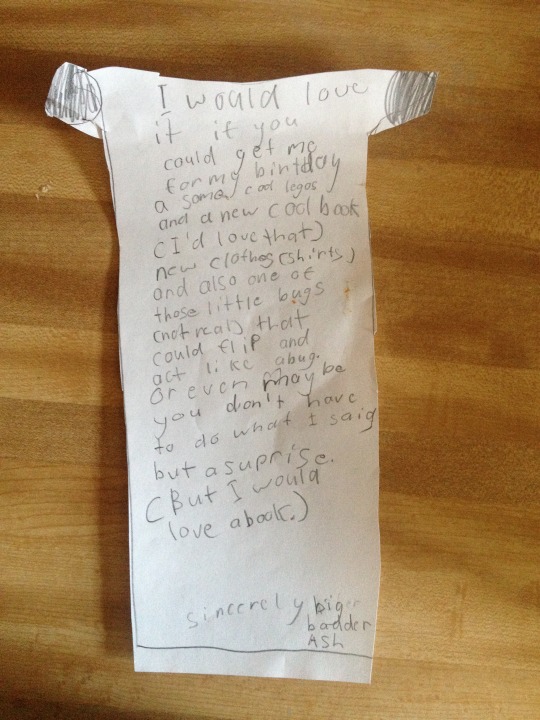 I would love
it if you
could get me
for my birthday
a some cool legos
and a new cool book
(I'd love that)
new clothes (shirts)
and also one of
those little bugs
(not real) that
could flip and
act like a bug.
or even may be
you don't have
to do what I said
but a suprise.
(But I would
love a book.)
sincerely biger
badder
ASh